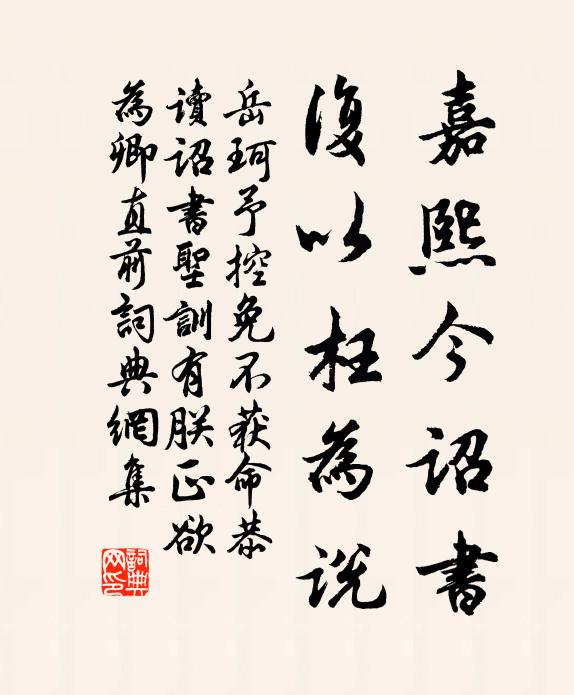 嘉熙今詔書
復以枉為説
岳珂予控免不获命恭
讀詔書聖訓有朕正欲
為卿直前詞典網集
詞典网印